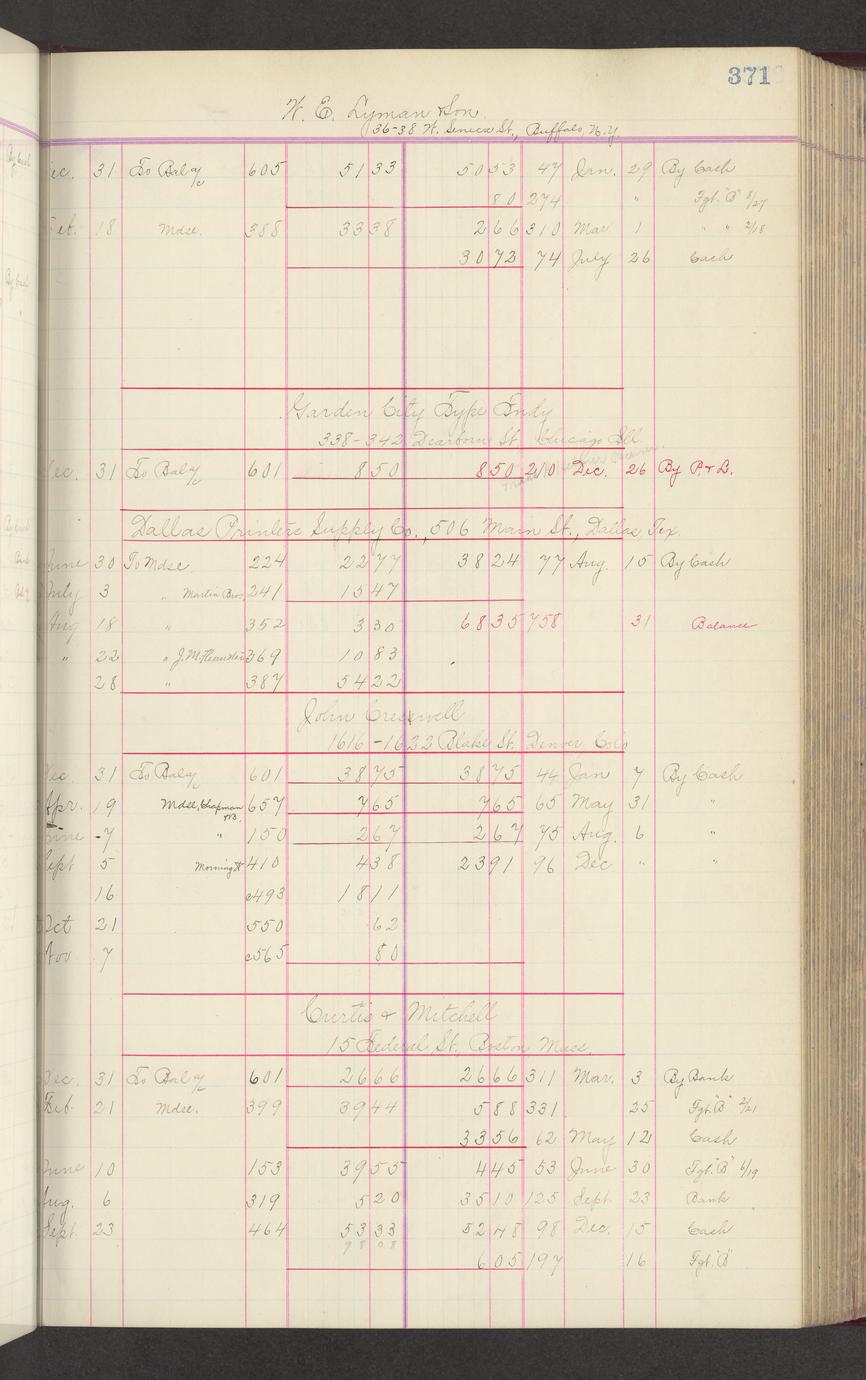 371
W. E. Lyman & Son
36-38 W. Seneca St., Buffalo, N.Y.
ec. 31 To Bal a/c 605 5133 5053 47 Jan. 29 By Cash
80 274 " Fgt. "B" 8/27
eb. 18 Mdse. 388 3338 266 310 Mar 1 " " 2/18
3072 74 July 26 Cash
Garden City Type Fndy
338-342 Dearborn St. Chicago Ill.
ec. 31 To Bal a/c 601 850 850 210 Dec. 26 By P. & L.
Dallas Printers Supply Co., 506 Main St., Dallas, Tex.
June 30 To Mdse. 224 2277 3824 77 Aug. 15 By Cash
July 3 " Martin Bros 241 1547
Aug 18 " 352 330 6835 758 31 Balance
" 22 " J.M. 369 1083
28 " 387 5422
John Cresswell
1616-1622 Blake St. Denver Colo
Dec. 31 To Bal a/c 601 3875 3875 44 Jan 7 By Cash
Apr. 19 Mdse, Chapman 657 765 765 65 May 31 "
June -7 " 150 267 267 75 Aug. 6 "
Sept 5 410 438 2391 96 Dec " "
16 c493 1811
Oct 21 550 62
Nov 7 c565 80
Curtis & Mitchell
15 Federal St. Boston Mass.
Dec. 31 To Bal a/c 601 2666 2666 311 Mar. 3 By Bank
Feb. 21 Mdse. 399 3944 588 331 25 Fgt. "B" 2/21
3356 62 May 12 Cash
June 10 153 3955 445 53 June 30 Fgt. "B" 6/19
Aug. 6 319 520 3510 125 Sept. 23 Bank
Sept. 23 464 5333 5248 98 Dec. 15 Cash
9808
605 197 16 Fgt. "B"